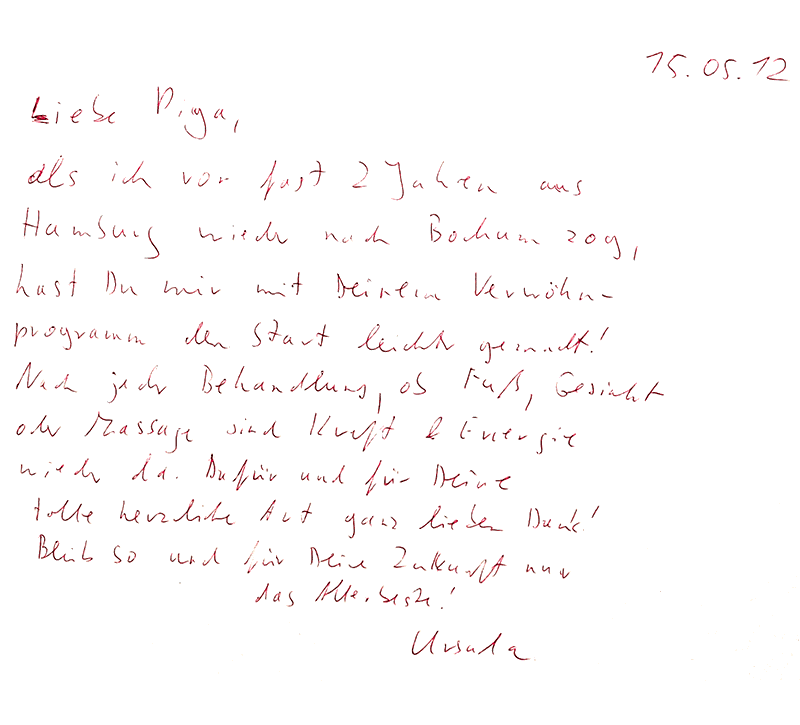 15.05.12
Liebe Piga,
als ich vor fast 2 Jahren aus
Hamburg wieder nach Bochum zog,
hast Du mir mit Deinem Verwöhn-
programm den Start leichter gemacht!
Nach jeder Behandlung, ob Fuß, Gesicht
oder Massage sind Kraft & Energie
wieder da. Dafür und für Deine
tolle herzliche Art ganz lieben Dank!
Bleib so und für Deine Zukunft nur
das Allerbeste!
Ursula